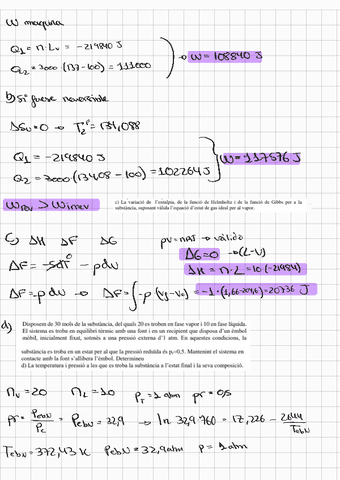 W maquina
Q1 = n·Lv = -219840 J
Q2 = 3000 (137-100) = 111000
→ W = 108840 J
b) Si fuese reversible
ΔSu = 0 → T2ᶠ = 134,088
Q1 = -219840 J
Q2 = 3000 (134,08 - 100) = 102264 J
W = 117576 J
Wrev > Wirrev
c) La variació de l'entalpia, de la funció de Helmholtz i de la funció de Gibbs per a la
substància, suposant vàlida l'equació d'estat de gas ideal per al vapor.
c) ΔH ΔF ΔG
pv = nRT → válido
ΔG = 0 → (L-V)
ΔF = -SdT⁰ - pdv
ΔH = n·L = 10 (-21984)
ΔF = -p dv → ΔF = ∫-p (Vf - Vo) = -1·(1,66-204,6) = 20736 J
d)
Disposem de 30 mols de la substància, del quals 20 es troben en fase vapor i 10 en fase líquida.
El sistema es troba en equilibri tèrmic amb una font i en un recipient que disposa d'un èmbol
mòbil, inicialment fixat, sotmès a una pressió externa d'1 atm. En aquestes condicions, la
substància es troba en un estat per al que la pressió reduïda és pr=0,5. Mantenint el sistema en
contacte amb la font s'allibera l'èmbol. Determineu
d) La temperatura i pressió a les que es troba la substància a l'estat final i la seva composició.
nv = 20 nL = 10 PT = 1 atm pr = 0,5
pr = Pebu/Pc → Pebu = 32,9 → ln 32,9·760 = 17,226 - 2644/Tebu
Tebu = 372,43 K Pebu = 32,9 atm p = 1 atm